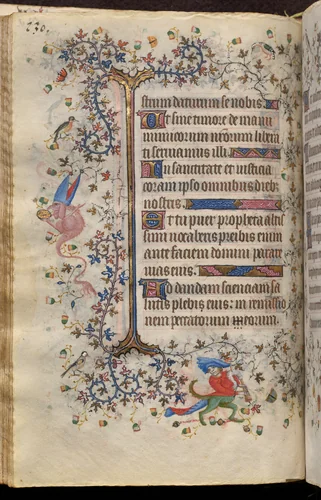 230.
strum daturum se nobis.
Ut sine timore de manu
inimicorum nrorum libera
ti serviamus illi.
In sanctitate et iusticia
coram ipso omnibus dieb
nostris.
Et tu puer propheta altis
simi vocaberis preibis enim
ante faciem domini parare
vias eius.
Ad dandam scienciam sa
lutis plebis eius: in remissio
nem peccatorum eorum.